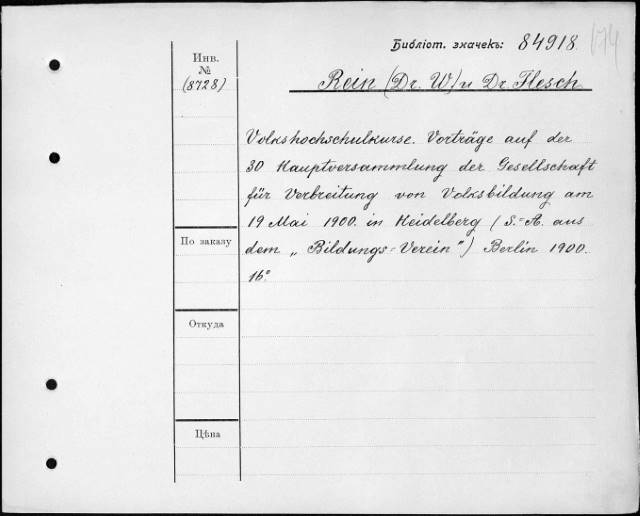 Библіот. значекъ: 84918. 174
Инв.
№
(8728)
Rein (Dr. W.) u Dr. Flesch
Volkshochschulkurse. Vorträge auf der
30 Hauptversammlung der Gesellschaft
für Verbreitung von Volksbildung am
19 Mai 1900. in Heidelberg (S.-A. aus
dem „Bildungs-Verein") Berlin 1900.
16°
По заказу
Откуда
Цѣна